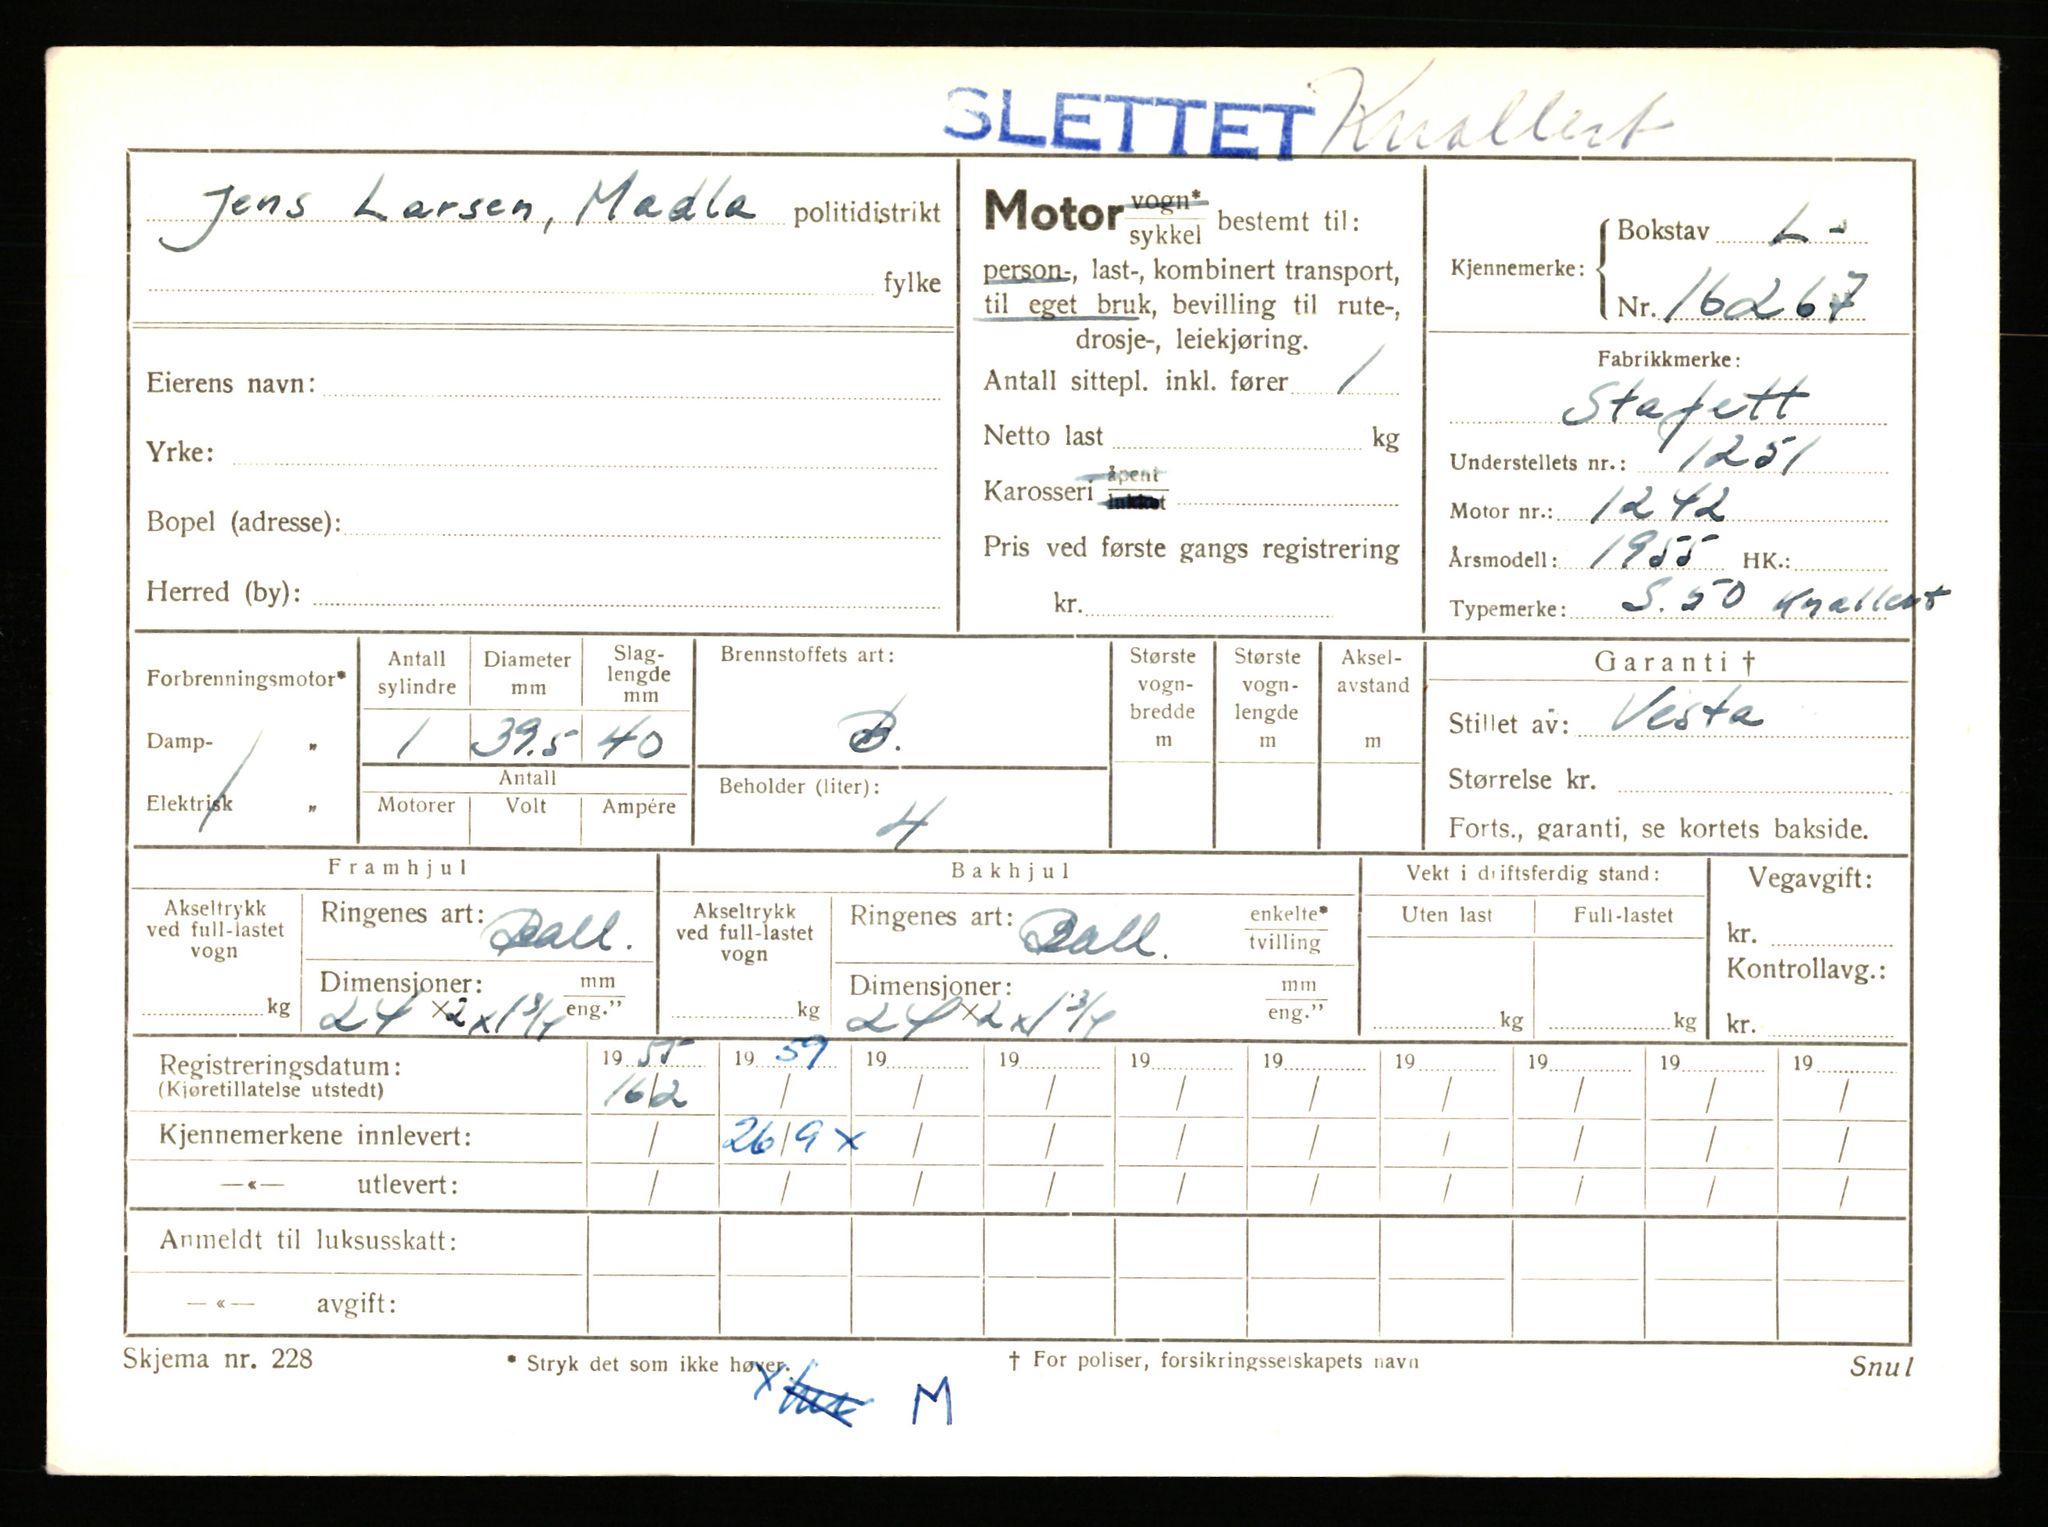 SLETTET Knallert
Jens Larsen, Madla politidistrikt
fylke
Eierens navn:
Yrke:
Bopel (adresse):
Herred (by):
Motor vogn* / sykkel bestemt til:
person-, last-, kombinert transport,
til eget bruk, bevilling til rute-,
drosje-, leiekjøring.
Antall sittepl. inkl. fører 1
Netto last kg
Karosseri åpent / lukket
Pris ved første gangs registrering
kr.
Kjennemerke: Bokstav L-
Nr. 16267
Fabrikkmerke:
Stafett
Understellets nr.: 1251
Motor nr.: 1242
Årsmodell: 1955 HK.:
Typemerke: S. 50 Knallert
Forbrenningsmotor*
Damp- „
Elektrisk „
Antall sylindre
1
Diameter mm
39.5
Slag-
lengde
mm
40
Antall
Motorer Volt Ampére
Brennstoffets art:
B.
Beholder (liter):
4
Største
vogn-
bredde
m
Største
vogn-
lengde
m
Aksel-
avstand
m
Garanti †
Stillet av: Vesta
Størrelse kr.
Forts., garanti, se kortets bakside.
Framhjul
Akseltrykk
ved full-lastet
vogn
kg
Ringenes art: Ball.
Dimensjoner: mm / eng.”
24 x 2 x 1 3/4
Bakhjul
Akseltrykk
ved full-lastet
vogn
kg
Ringenes art: Ball. enkelte* / tvilling
Dimensjoner: mm / eng.”
24 x 2 x 1 3/4
Vekt i driftsferdig stand:
Uten last Full-lastet
kg kg
Vegavgift:
kr.
Kontrollavg.:
kr.
Registreringsdatum: 19 55 19 59 19 19 19 19 19 19 19 19
(Kjøretillatelse utstedt) 16/2 / / / / / / / / /
Kjennemerkene innlevert: / 26/9 x / / / / / / / /
—«— utlevert: / / / / / / / / / /
Anmeldt til luksusskatt:
—«— avgift:
Skjema nr. 228 * Stryk det som ikke høver. † For poliser, forsikringsselskapets navn Snul
x M